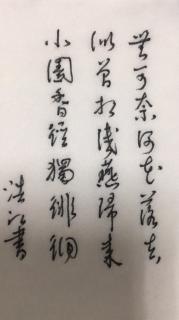 无可奈何花落去
似曾相識燕歸来
小園香徑獨徘徊
浩江書